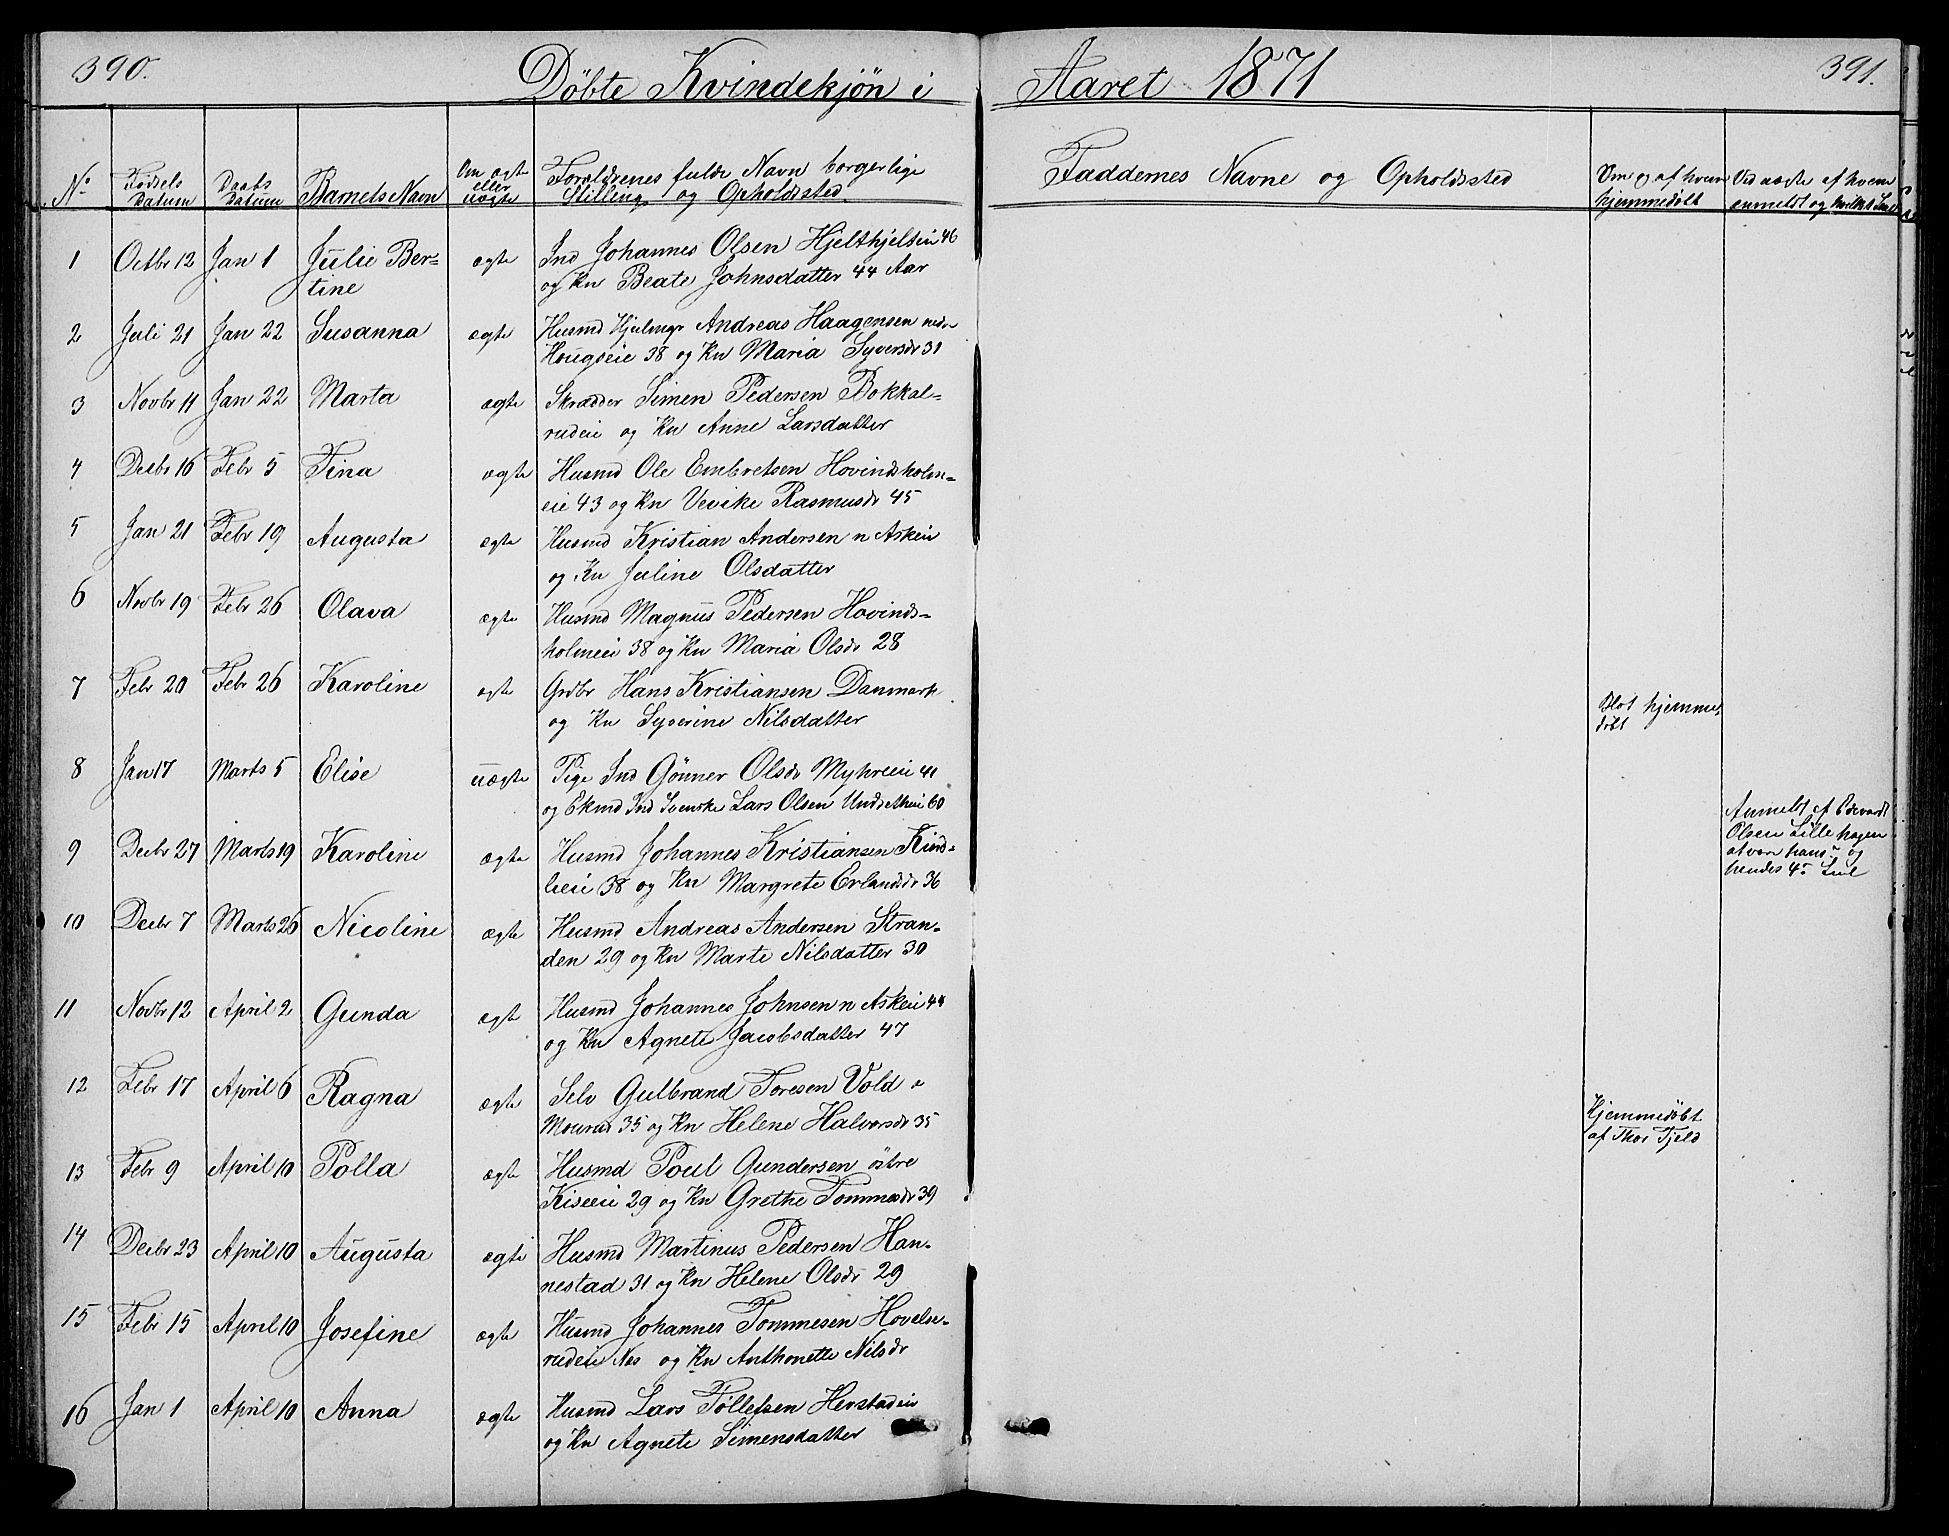 390. Døbte Kvindekjøn i Aaret 1871 391.
No Fødsels Datum Daabs Datum Barnets Navn Om ægte eller uægte Forældrenes fulde Navn borgerlige Stilling og Opholdssted Faddernes Navne og Opholdssted Om og af hvem hjemmedøbt Ved uægte af hvem anmeldt og hvilket Leie
1 Octbr 12 Jan 1 Julie Ber= ægte Ind Johannes Olsen Hjelthjelseie 46
tine og Kn Beate Johnsdatter 44 Aar
2 Juli 21 Jan 22 Susanna ægte Husmd Hjulmgr Andreas Haagensen nedr
Hougseie 38 og Kn Maria Syversdr 31
3 Novbr 11 Jan 22 Marta ægte Skrædder Simen Pedersen Bokkal=
rudeie og Kn Anne Larsdatter
4 Decbr 16 Febr 5 Tina ægte Husmd Ole Embretsen Hovindsholm=
eie 43 og Kn Vevike Rasmusdr 45
5 Jan 21 Febr 19 Augusta ægte Husmd Kristian Andersen n Askeie
og Kn Juline Olsdatter
6 Novbr 19 Febr 26 Olava ægte Husmd Magnus Pedersen Hovinds=
holmeie 38 og Kn Maria Olsdr 28
7 Febr 20 Febr 26 Karoline ægte Grdbr Hans Kristiansen Danmark Blot hjemme=
og Kn Syverine Nilsdatter døbt
8 Jan 17 Marts 5 Elise uægte Pige Ind Gønner Olsdr Myhreeie 41
og Ekmd Ind Svenske Lars Olsen Undseth eie 60
Anmeldt af Edevardt
Olsen Lillehagen
at være hans og
hendes 4de Leie
9 Decbr 27 Marts 19 Karoline ægte Husmd Johannes Kristiansen Kind=
lieie 38 og Kn Margrete Erlandsdr 36
10 Decbr 7 Marts 26 Nicoline ægte Husmd Andreas Andersen Stran=
den 29 og Kn Marte Nilsdatter 30
11 Novbr 12 April 2 Gunda ægte Husmd Johannes Johnsen n Askeie 44
og Kn Agnete Jacobsdatter 47
12 Febr 17 April 6 Ragna ægte Selv Gulbrand Toresen Vold
Mourud 35 og Kn Helene Halvorsdr 35
Hjemmedøbt
af Thor Fjeld
13 Febr 9 April 10 Polla ægte Husmd Poul Gundersen østre
Kiseeie 29 og Kn Grethe Tommesdr 39
14 Decbr 23 April 10 Augusta ægte Husmd Martinus Pedersen Han=
nestad 31 og Kn Helene Olsdr 29
15 Febr 15 April 10 Josefine ægte Husmd Johannes Tommesen Hovels=
rudeie Nes og Kn Anthonette Nilsdr
16 Jan 1 April 10 Anna ægte Husmd Lars Tøllefsen Herstadeie
og Kn Agnete Simensdatter